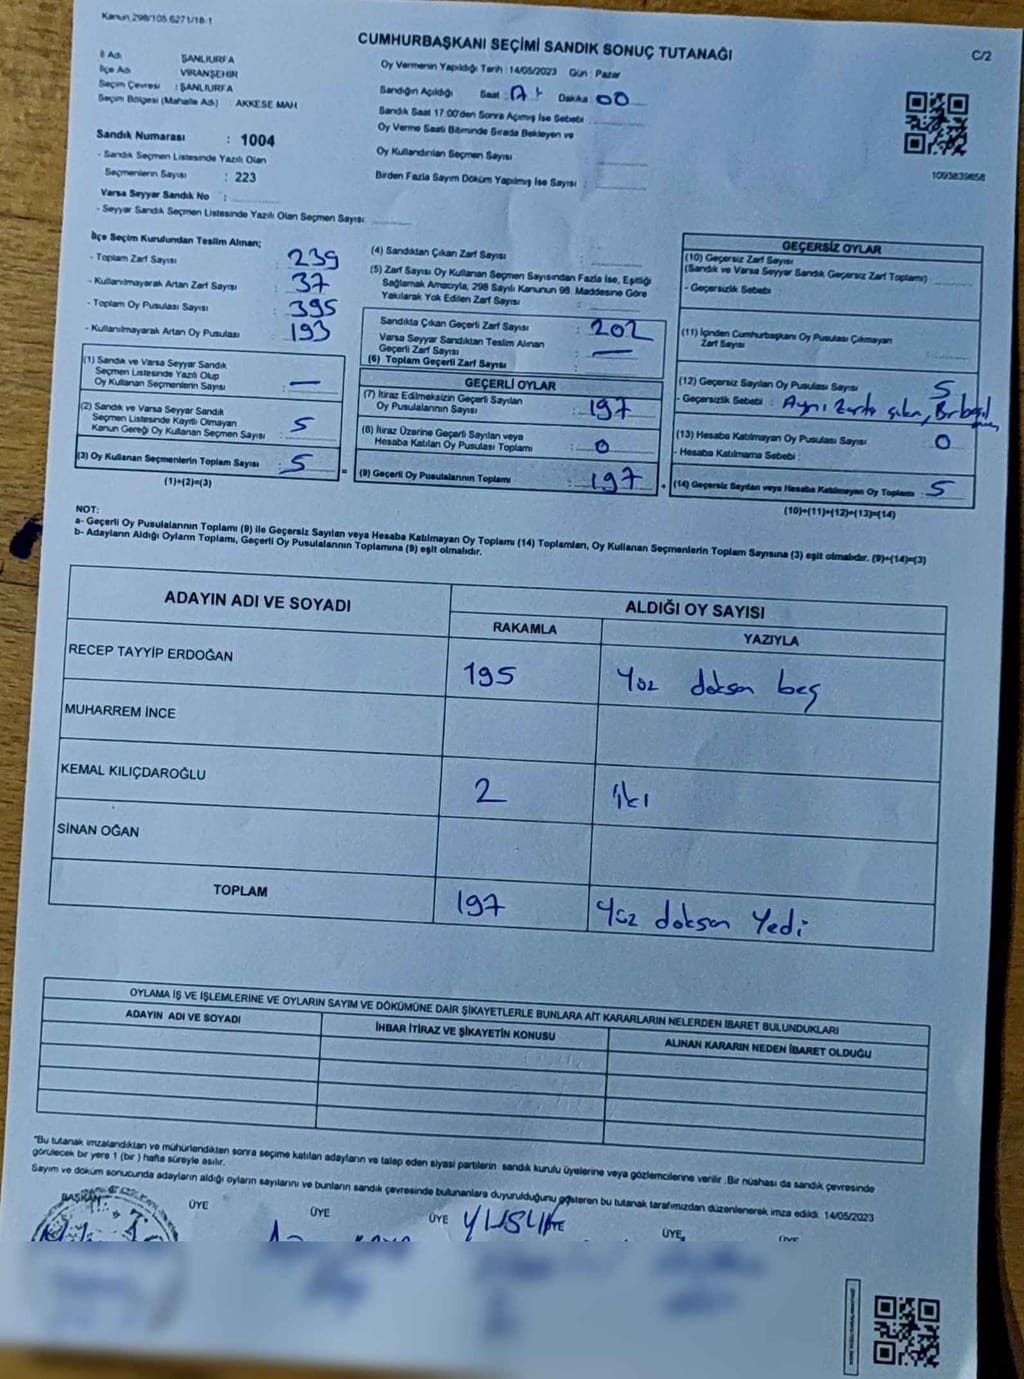 Kanun 298/105 6271/18-1
CUMHURBAŞKANI SEÇİMİ SANDIK SONUÇ TUTANAĞI
C/2
İl Adı : ŞANLIURFA
İlçe Adı : VİRANŞEHİR
Seçim Çevresi : ŞANLIURFA
Seçim Bölgesi (Mahalle Adı) : AKKESE MAH
Sandık Numarası : 1004
- Sandık Seçmen Listesinde Yazılı Olan
Seçmenlerin Sayısı : 223
Varsa Seyyar Sandık No :
- Seyyar Sandık Seçmen Listesinde Yazılı Olan Seçmen Sayısı
Oy Vermenin Yapıldığı Tarih : 14/05/2023 Gün : Pazar
Sandığın Açıldığı Saat : Dakika : 00
Sandık Saat 17:00'den Sonra Açılmış İse Sebebi :
Oy Verme Saati Bitiminde Sırada Bekleyen ve
Oy Kullandırılan Seçmen Sayısı
Birden Fazla Sayım Döküm Yapılmış İse Sayısı :
1093839858
İlçe Seçim Kurulundan Teslim Alınan;
- Toplam Zarf Sayısı : 239
- Kullanılmayarak Artan Zarf Sayısı : 37
- Toplam Oy Pusulası Sayısı : 395
- Kullanılmayarak Artan Oy Pusulası : 193
(1) Sandık ve Varsa Seyyar Sandık
Seçmen Listesinde Yazılı Olup
Oy Kullanan Seçmenlerin Sayısı : —
(2) Sandık ve Varsa Seyyar Sandık
Seçmen Listesinde Kayıtlı Olmayan
Kanun Gereği Oy Kullanan Seçmen Sayısı : 5
(3) Oy Kullanan Seçmenlerin Toplam Sayısı : 5
(1)+(2)=(3)
(4) Sandıktan Çıkan Zarf Sayısı :
(5) Zarf Sayısı Oy Kullanan Seçmen Sayısından Fazla İse, Eşitliği
Sağlamak Amacıyla, 298 Sayılı Kanunun 98. Maddesine Göre
Yakılarak Yok Edilen Zarf Sayısı :
Sandıkta Çıkan Geçerli Zarf Sayısı : 202
Varsa Seyyar Sandıktan Teslim Alınan
Geçerli Zarf Sayısı : —
(6) Toplam Geçerli Zarf Sayısı :
GEÇERLİ OYLAR
(7) İtiraz Edilmeksizin Geçerli Sayılan
Oy Pusulalarının Sayısı : 197
(8) İtiraz Üzerine Geçerli Sayılan veya
Hesaba Katılan Oy Pusulası Toplamı : 0
(9) Geçerli Oy Pusulalarının Toplamı : 197
GEÇERSİZ OYLAR
(10) Geçersiz Zarf Sayısı
(Sandık ve Varsa Seyyar Sandık Geçersiz Zarf Toplamı)
- Geçersizlik Sebebi :
(11) İçinden Cumhurbaşkanı Oy Pusulası Çıkmayan
Zarf Sayısı
(12) Geçersiz Sayılan Oy Pusulası Sayısı : 5
- Geçersizlik Sebebi : Aynı Zarfta çıkan,
(13) Hesaba Katılmayan Oy Pusulası Sayısı : 0
- Hesaba Katılmama Sebebi :
(14) Geçersiz Sayılan veya Hesaba Katılmayan Oy Toplamı : 5
(10)+(11)+(12)+(13)=(14)
NOT:
a- Geçerli Oy Pusulalarının Toplamı (9) ile Geçersiz Sayılan veya Hesaba Katılmayan Oy Toplamı (14) Toplamları, Oy Kullanan Seçmenlerin Toplam Sayısına (3) eşit olmalıdır. (9)+(14)=(3)
b- Adayların Aldığı Oyların Toplamı, Geçerli Oy Pusulalarının Toplamına (9) eşit olmalıdır.
ADAYIN ADI VE SOYADI
ALDIĞI OY SAYISI
RAKAMLA YAZIYLA
RECEP TAYYİP ERDOĞAN 195 Yüz doksan beş
MUHARREM İNCE
KEMAL KILIÇDAROĞLU 2 iki
SİNAN OĞAN
TOPLAM 197 Yüz doksan Yedi
OYLAMA İŞ VE İŞLEMLERİNE VE OYLARIN SAYIM VE DÖKÜMÜNE DAİR ŞİKAYETLERLE BUNLARA AİT KARARLARIN NELERDEN İBARET BULUNDUKLARI
ADAYIN ADI VE SOYADI İHBAR İTİRAZ VE ŞİKAYETİN KONUSU ALINAN KARARIN NEDEN İBARET OLDUĞU
"Bu tutanak imzalandıktan ve mühürlendikten sonra seçime katılan adayların ve talep eden siyasi partilerin sandık kurulu üyelerine veya gözlemcilerine verilir. Bir nüshası da sandık çevresinde
görülecek bir yere 1 (bir) hafta süreyle asılır.
Sayım ve döküm sonucunda adayların aldığı oyların sayılarını ve bunların sandık çevresinde bulunanlara duyurulduğunu gösteren bu tutanak tarafımızdan düzenlenerek imza edildi. 14/05/2023
BAŞKAN ÜYE ÜYE ÜYE YUSUF ÜYE ÜYE ÜYE